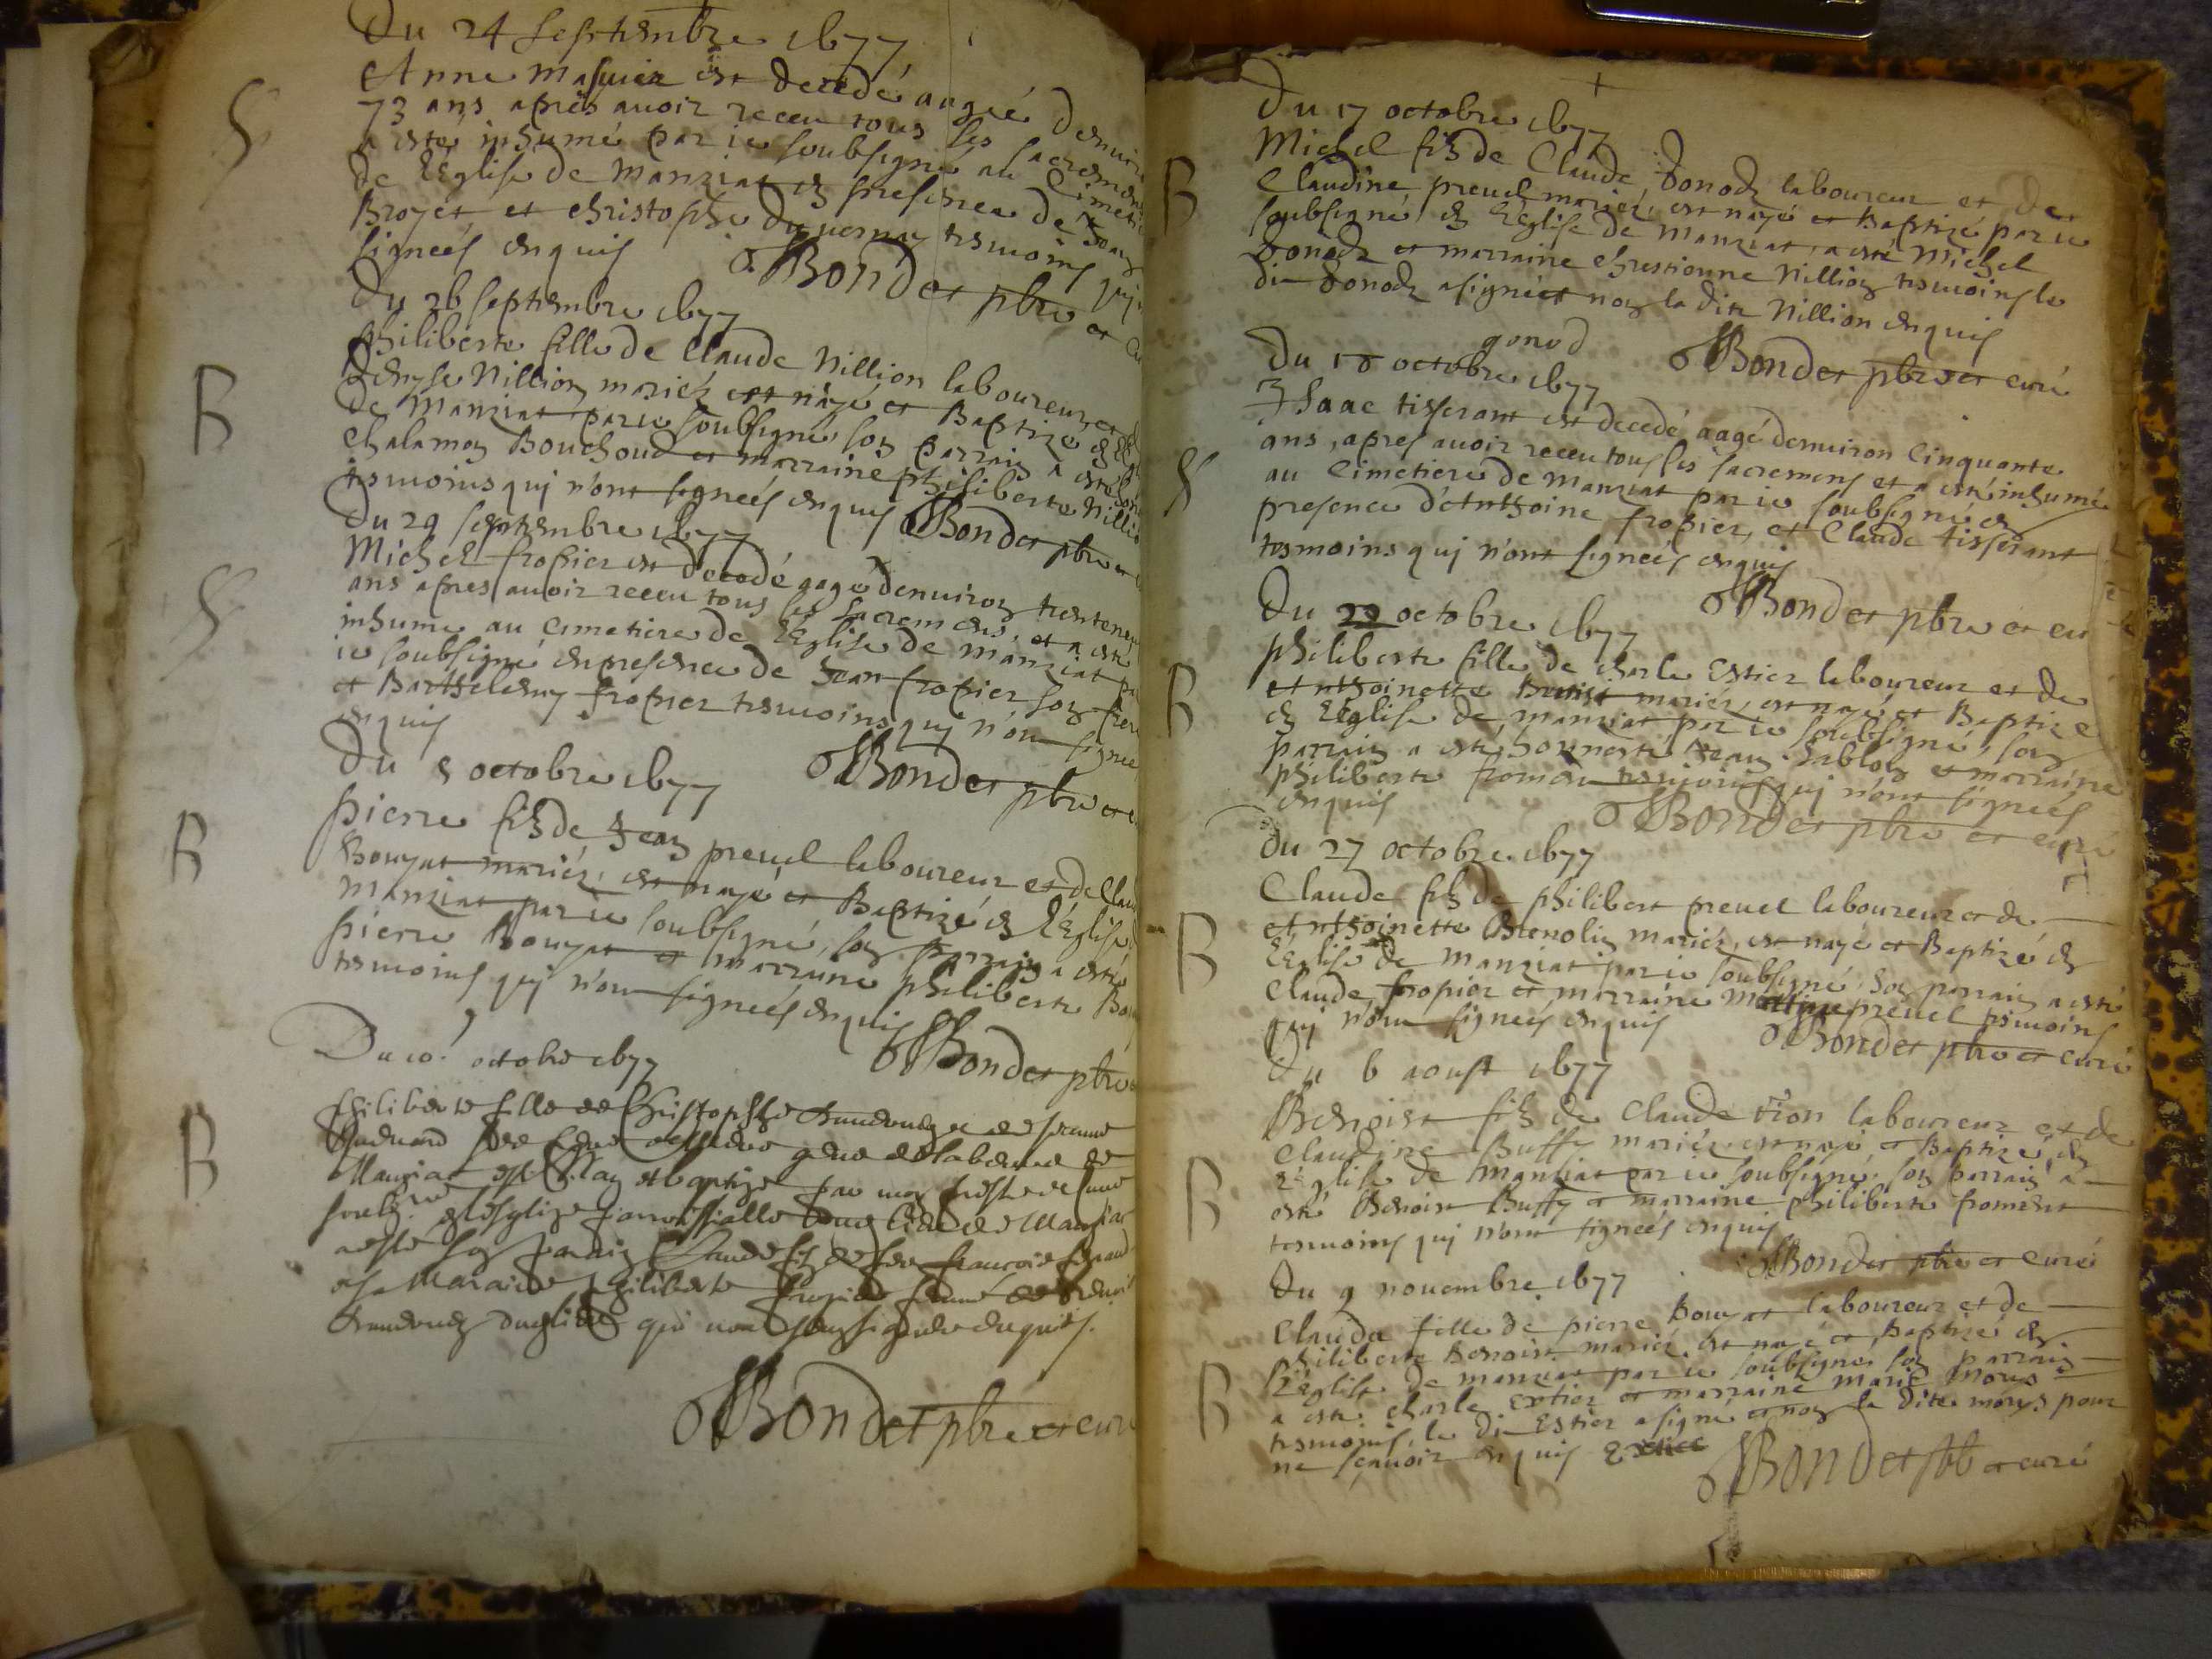 Du 24 septembre 1677
S
Anne Masuier est decedé aagée denuiro
73 ans apres auoir receu tous les sacremens
a esté inhumé par ie soubsigné au Cimeti
de l'Eglise de Manziat en presence de Jean
Broyer et christophe Duuernay tesmoins qui
signeés enquis
Bondet pbre et cu
Du 26 septembre 1677
B
philiberte fille de Claude Nillion laboureur et
Denyse Nillion mariéz est nayé et Baptizé en l'E
de Manziat par ie soubsigné son parrain a esté
Chalamon Bouchoud et marraine philiberte Nillio
tesmoins qui n'ont signeés enquis Bondet pbre et
Du 29 septembre 1677
S
Michel fropier est decedé aagé denuiron trente
ans apres auoir receu tous les sacremens, et a esté
inhume au cimetiere de l'Eglise de Manziat pa
ie soubsigné en presence de Jean fropier son frer
et Barthelemy fropier tesmoins qui n'ont signeé
enquis
Bondet pbre et c
Du 8 octobre 1677
B
pierre filz de Jean preuel laboureur et de Clau
Bouyat mariéz, est nayé et Baptizé en l'Eglise
Manziat par ie soubsigné, son parrain a esté
pierre Bouyat et marraine philiberte Bo
tesmoins qui n'ont signeés enquis
Bondet pbre
Du 10 octobre 1677
B
philiberte fille de Christophle
Manziat et baptize par moy
soubz. en l'esglize parrossialle dud lieu de Manziat
a esté son parrain Claude filz de feu francois
et sa Maraine philiberte fropier femme de
qui nont enquis.
Bondet pbre et curé
Du 17 octobre 1677
B
Michel filz de Claude Gonod laboureur et de
Claudine preuel mariéz, est nayé et Baptizé par ie
soubsigné en l'Eglise de Manziat, a esté Michel
Gonod et marraine chrestienne Nillion tesmoins le
dit Gonod a signé et non la dite Nillion enquis
gonod
Bondet pbre et curé
Du 18 octobre 1677
S
Isaac tisserant est decedé aagé denuiron Cinquante
ans, apres auoir receu tous les sacremens et a esté inhumé
au Cimetiere de Manziat par ie soubsigné en
presence d'Anthoine fropier, et Claude tisserant
tesmoins qui n'ont signeés enquis
Bondet pbre et cu
Du 22 octobre 1677
B
philiberte fille de charle Estier laboureur et de
Anthoinette Benist mariéz, est nayé et Baptizé
en l'Eglise de manziat par ie soubsigné, son
parrain a esté honneste Jean Sablon et marraine
philiberte froment tesmoins qui n'ont signeés
enquis
Bondet pbre et curé
Du 27 octobre 1677
B
Claude filz de philibert preuel laboureur et de
Anthoinette Benolin mariéz, est nayé et Baptizé en
l'Eglise de manziat par ie soubsigné, son parrain a esté
Claude fropier et marraine preuel tesmoins
qui n'ont signeés enquis
Bondet pbre et curé
Du 6 aoust 1677
B
Benoist filz de Claude laboureur et de
Claudine Buffy mariéz est nayé et Baptizé, en
l'Eglise de Manziat par ie soubsigné son parrain a
esté Benoist Buffy et marraine philiberte froment
tesmoins qui n'ont signeés enquis
Bondet pbre et curé
Du 9 nouembre 1677
B
Clauda fille de pierre Bouyat laboureur et de
philiberte Benoist mariéz, est nayé et Baptizé en
l'Eglise de manziat par ie soubsigné son parrain
a esté charle Estier et marraine marie Morys
tesmoins, le dit Estier a signé et non la dite morys pour
ne scauoir enquis Estier
Bondet pbr et curé